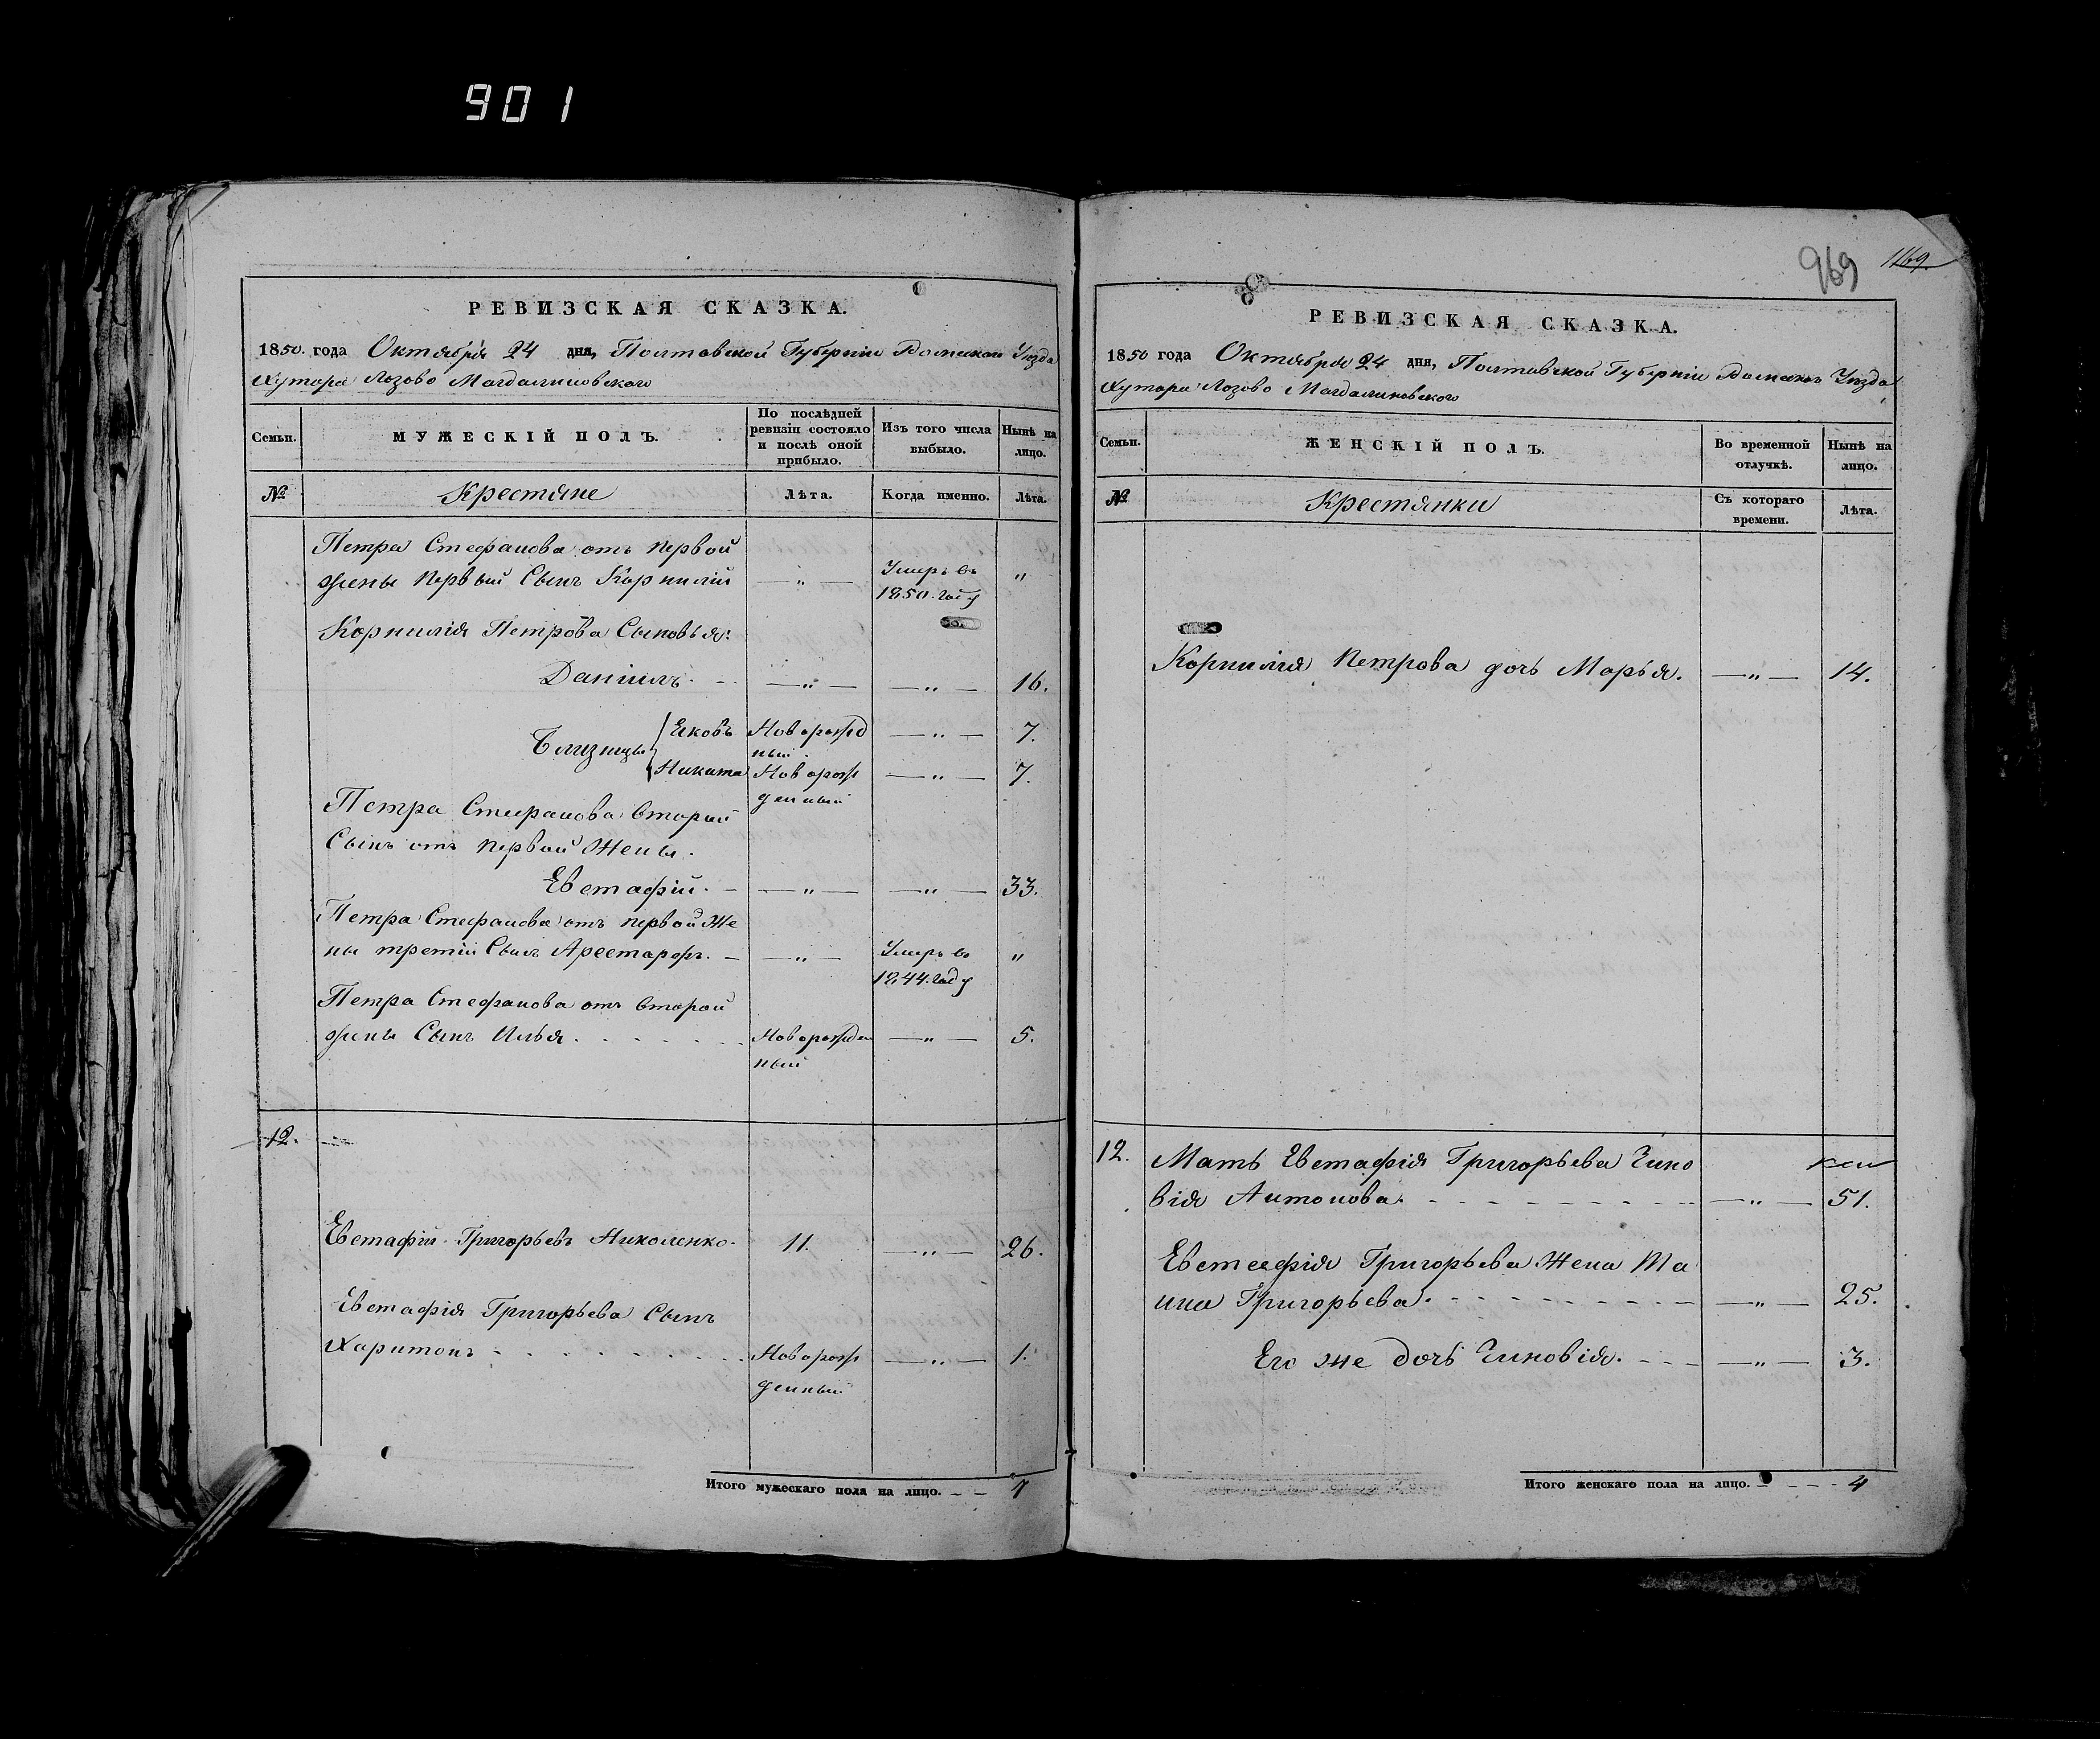 901
РЕВИЗСКАЯ СКАЗКА.
1850. года Октября 24 дня, Полтавской Губернии Роменскаго Уѣзда
Хутора Лозово Магдалиновскаго
Семьи.
МУЖЕСКІЙ ПОЛЪ.
По послѣдней ревизіи состояло и послѣ оной прибыло.
Изъ того числа выбыло.
Нынѣ на лицо.
№
Крестяне
Лѣта.
Когда именно.
Лѣта.
Петра Стефанова отъ первой
жены первый Сынъ Корнилій — „ — Умеръ въ 1850. году „
Корнилія Петрова Сыновья:
Даніилъ. — „ — — „ — 16.
Близнецы
Яковъ Новорожденный — „ — 7.
Никита Новорожденный — „ — 7.
Петра Стефанова вторый
Сынъ отъ первой Жены.
Евстафій. — — „ — — „ — 33.
Петра Стефанова отъ первой Же
ны третій Сынъ Аристархъ. — — „ — Умеръ въ 1844. году „
Петра Стефанова отъ второй
жены Сынъ Илья Новорожденный — „ — 5.
12.
Евстафій Григорьевъ Николенко. 11. — „ — 26.
Евстафія Григорьева Сынъ
Харитонъ Новорожденный — „ — 1.
Итого мужескаго пола на лицо. — — 7
969
1169.
РЕВИЗСКАЯ СКАЗКА.
1850 года Октября 24 дня, Полтавской Губерніи Роменскъ Уѣзда
Хутора Лозово Магдалиновскаго
Семьи.
ЖЕНСКІЙ ПОЛЪ.
Во временной отлучкѣ.
Нынѣ на лицо.
№
Крестянки
Съ котораго времени.
Лѣта.
Корнилія Петрова дочь Марья. — „ — 14.
12. Мать Евстафія Григорьева Зино
вія Антонова. — „ — 51.
Евстафія Григорьева Жена Ма
Григорьева. — „ — 25.
Его же дочь Зиновія. — „ — 3.
Итого женскаго пола на лицо. — — 4